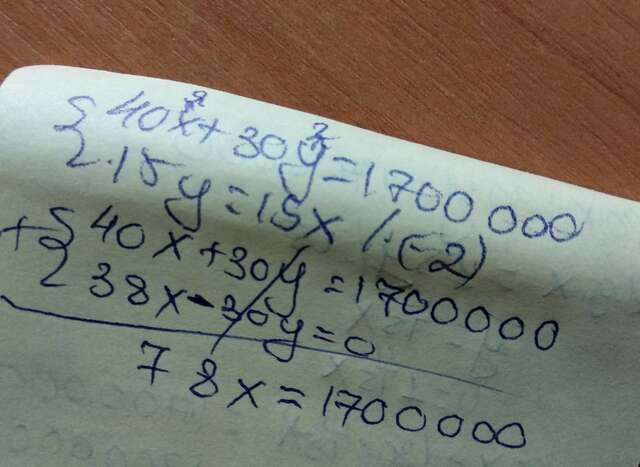 { 40x² + 30y² = 1700 000
{ .15y = 15x /·(-2)
+ { 40x + 30y = 1700000
{ 38x - 30y = 0
78x = 1700000